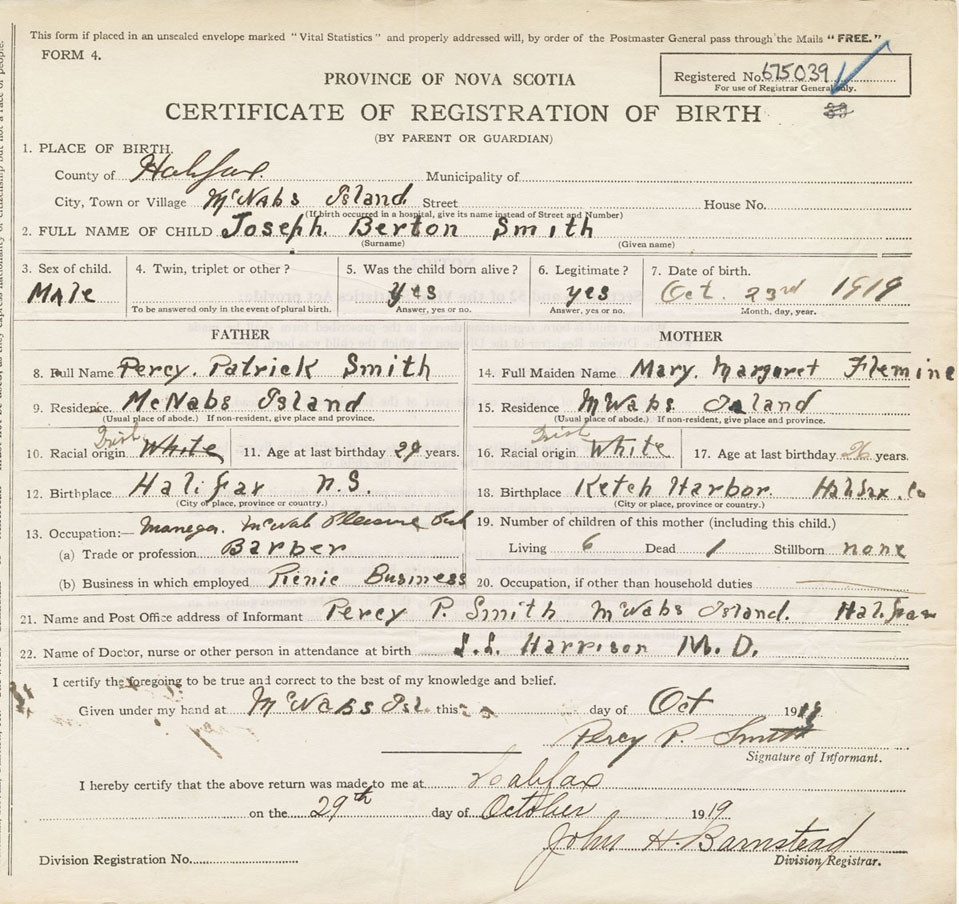 This form if placed in an unsealed envelope marked "Vital Statistics" and properly addressed will, by order of the Postmaster General pass through the Mails "FREE."
FORM 4.
Registered No. 675039
For use of Registrar General only.
PROVINCE OF NOVA SCOTIA
CERTIFICATE OF REGISTRATION OF BIRTH
(BY PARENT OR GUARDIAN)
1. PLACE OF BIRTH.
County of Halifax Municipality of
City, Town or Village McNabs Island Street House No.
(If birth occurred in a hospital, give its name instead of Street and Number)
2. FULL NAME OF CHILD Joseph. Berton Smith
(Surname) (Given name)
3. Sex of child. 4. Twin, triplet or other? 5. Was the child born alive? 6. Legitimate? 7. Date of birth.
Male yes yes Oct. 23rd 1919
To be answered only in the event of plural birth. Answer, yes or no. Answer, yes or no. Month, day, year.
FATHER MOTHER
8. Full Name Percy. Patrick Smith 14. Full Maiden Name Mary. Margaret Fleming
9. Residence McNabs Island 15. Residence McNabs Island
(Usual place of abode.) If non-resident, give place and province. (Usual place of abode.) If non-resident, give place and province.
Irish Irish
10. Racial origin White 11. Age at last birthday 29 years. 16. Racial origin White 17. Age at last birthday 26 years.
12. Birthplace Halifax N.S. 18. Birthplace Ketch Harbor. Halifax. Co
(City or place, province or country.) (City or place, province or country.)
13. Occupation:— Manager. McNab Pleasure 19. Number of children of this mother (including this child.)
(a) Trade or profession Barber Living 6 Dead 1 Stillborn none
(b) Business in which employed Picnic Business 20. Occupation, if other than household duties
21. Name and Post Office address of Informant Percy P. Smith McNabs Island. Halifax
22. Name of Doctor, nurse or other person in attendance at birth Harrison M.D.
I certify the foregoing to be true and correct to the best of my knowledge and belief.
Given under my hand at McNabs Isl. this day of Oct 1919
Percy P. Smith
Signature of Informant.
I hereby certify that the above return was made to me at Halifax
on the 29th day of October 1919
John H. Barnstead
Division Registrar.
Division Registration No.